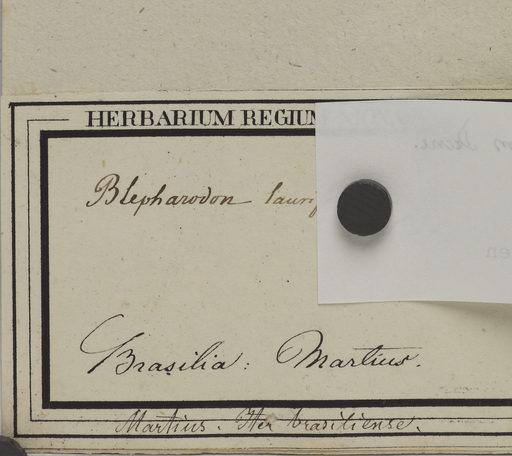 HERBARIUM REGIUM
Blepharodon
Brasilia: Martius.
Martius. Iter brasiliense.